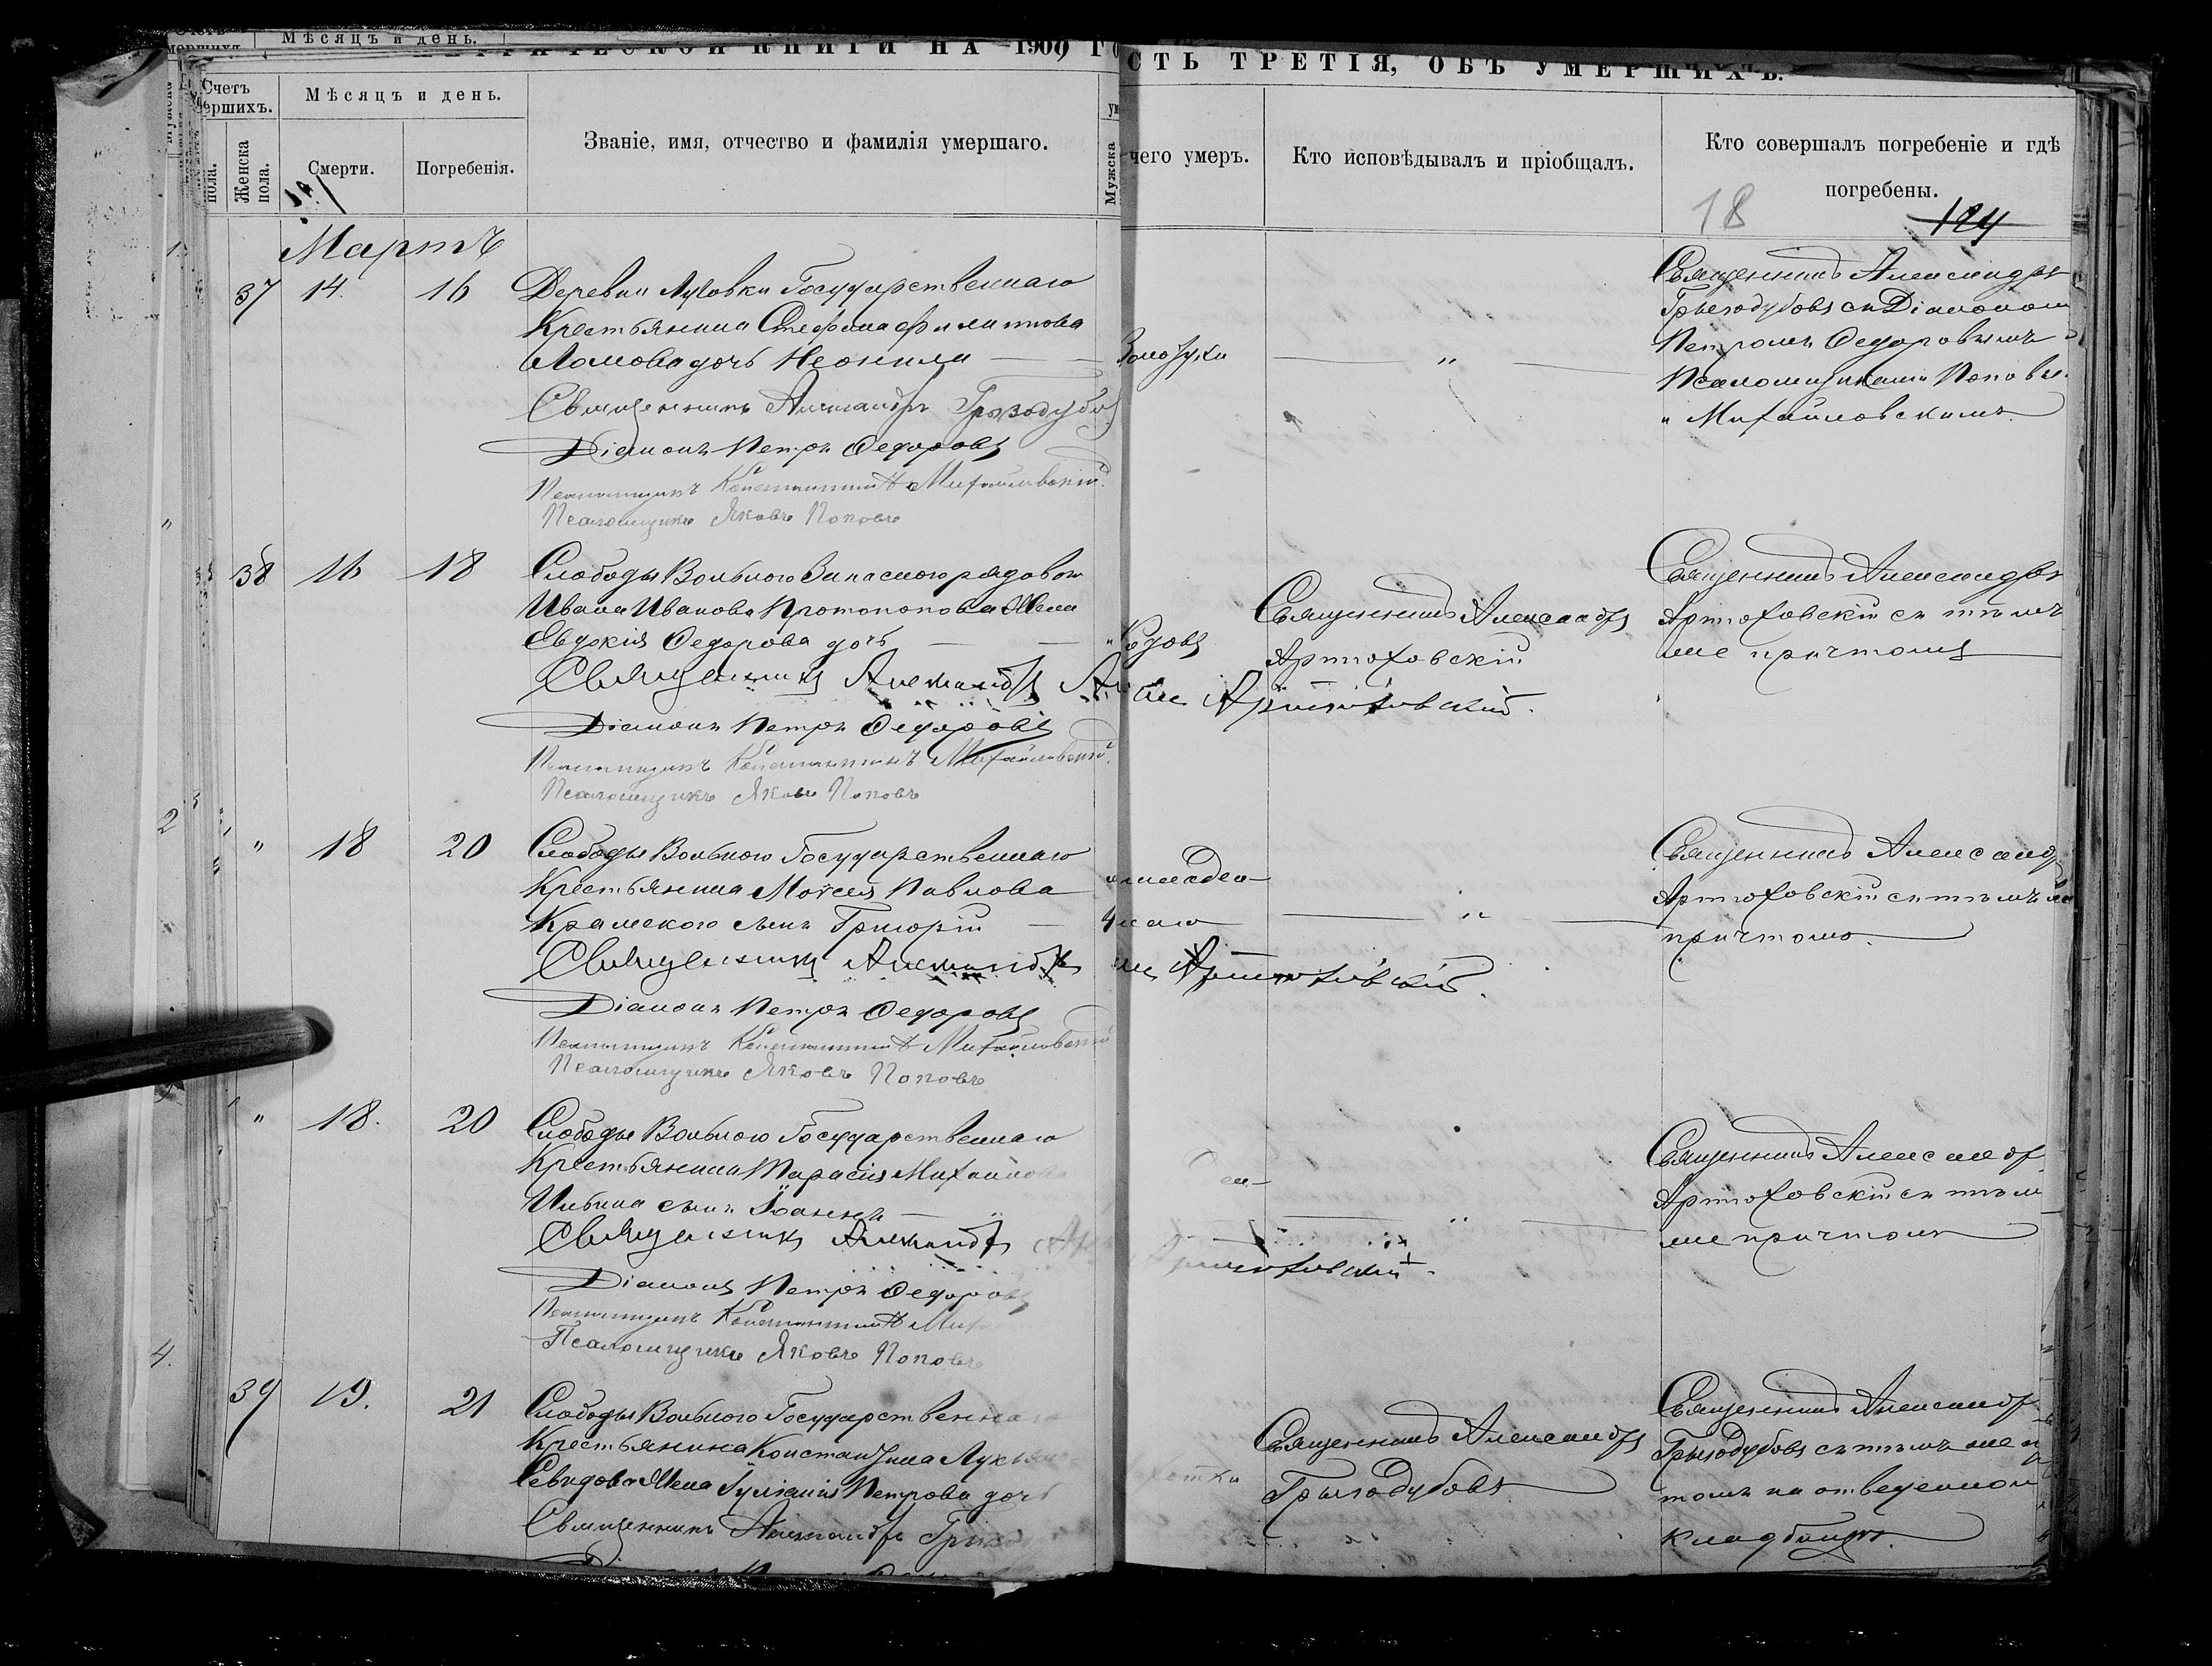 Мѣсяцъ и день.
КНИГИ НА 1909 ГО
СТЬ ТРЕТІЯ, ОБЪ УМЕРШИХЪ.
Счетъ
ершихъ.
Мѣсяцъ и день.
Званіе, имя, отчество и фамилія умершаго.
чего умеръ.
Кто исповѣдывалъ и пріобщалъ.
Кто совершалъ погребеніе и гдѣ
погребены.
пола.
Женска
пола.
Смерти.
Погребенія.
Мужска
18
124
Мартъ
37 14. 16 Деревни Государственнаго
Крестьянина Стефана Филиппова
Ломова дочь Неонила
Священникъ Александръ Грызодубов
Діаконъ Петръ Ѳедоровъ
Псаломщикъ Константинъ Михайловскій.
Псаломщикъ Яковъ Поповъ
Золотухи "
Священникъ Александръ
Грызодубовъ съ Діакономъ
Петромъ Ѳедоровымъ
Псаломщиками Поповы.
и Михайловскимъ
38 16 18 Слободы Вольного Запасного рядового
Ивана Иванова Протопопова Жена
Евдокія Ѳедорова дочь
Священникъ Александръ
Артюховскій.
Діаконъ Петръ Ѳедоровъ
Псаломщикъ Константинъ Михайловскій.
Псаломщикъ Яковъ Поповъ
Священникъ Александръ
Артюховскій
Священникъ Александръ
Артюховскій съ тѣмъ
же причтомъ
" 18 20 Слободы Вольного Государственнаго
Крестьянина Моѵсея Павлова
Крамского сынъ Григорій
Священникъ Александръ
Артюховскій.
Діаконъ Петръ Ѳедоровъ
Псаломщикъ Константинъ Михайловскій
Псаломщикъ Яковъ Поповъ
"
Священникъ Александр
Артюховскій съ тѣмъ же
причтомъ.
" 18. 20 Слободы Вольного Государственнаго
Крестьянина Тарасія Михайлова
Ильина сынъ Іоаннъ
Священникъ Александръ
Артюховскій.
Діаконъ Петръ Ѳедоровъ
Псаломщикъ Константинъ Миха
Псаломщикъ Яковъ Поповъ
"
Священникъ Александр
Артюховскій съ тѣм
же причтомъ
39 19. 21 Слободы Вольного Государственнаго
Крестьянина Константина Лукьян
Жена Іуліанія Петрова дочь
Священникъ Александръ Грызод
Священникъ Александръ
Грызодубовъ
Священникъ Александр
Грызодубовъ съ тѣмъ же п
томъ на отведенном
кладбищѣ.